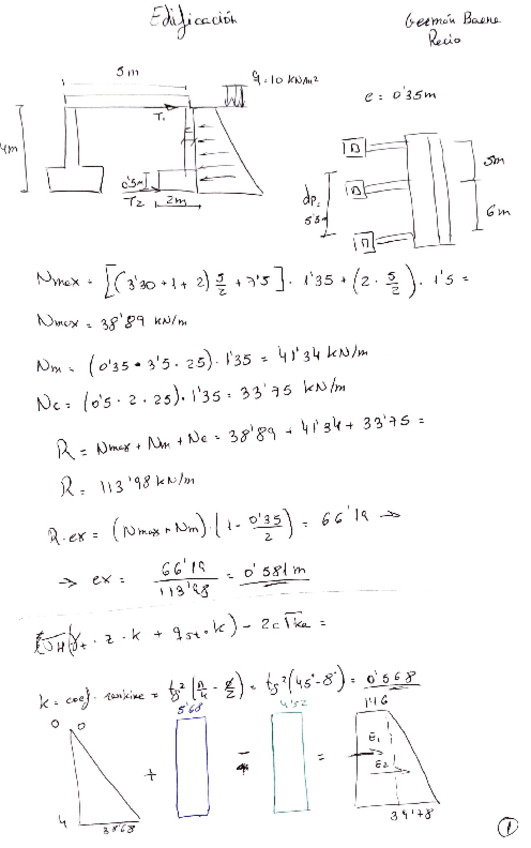 Edificación
Germán Baena
Recio
5m
q=10 kN/m²
e = 0'35m
4m
T₁
0'5m
T2
2m
dp:
5'5m
5m
6m
Nmax = [(3'30 + 1 + 2) 5/2 + 7'5] · 1'35 + (2 · 5/2) · 1'5 =
Nmax = 38'89 kN/m
Nm = (0'35 · 3'5 · 25) · 1'35 = 41'34 kN/m
Nc = (0'5 · 2 · 25) · 1'35 = 33'75 kN/m
R = Nmax + Nm + Nc = 38'89 + 41'34 + 33'75 =
R = 113'98 kN/m
R·ex = (Nmax + Nm) · (1 - 0'35/2) = 66'19 →
→ ex = 66'19/113'98 = 0'581m
· z · k + qst · k) - 2c√ka =
k = coef. rankine = tg²(π/4 - ø/2) = tg²(45° - 8°) = 0'568
0 0
4
38'68
+
5'68
-
4'52
=
1'16
E₁
E2
39'78
1